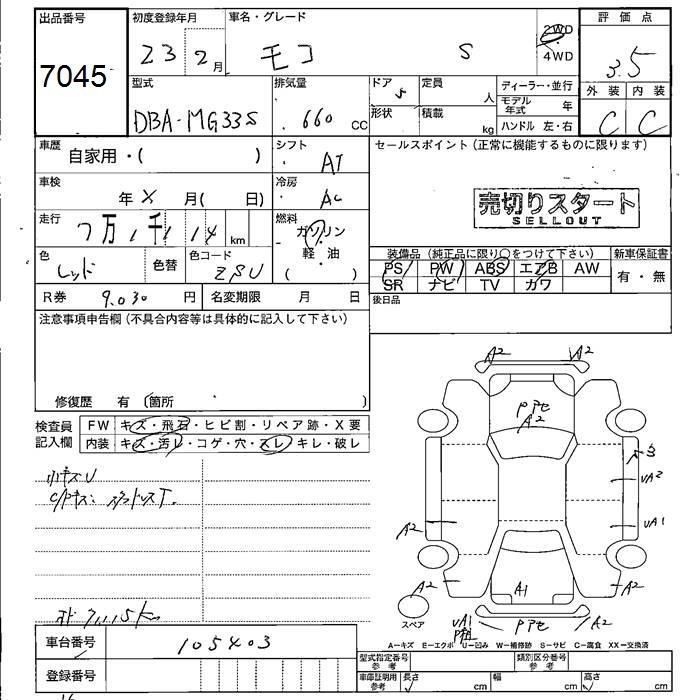 出品番号 初度登録年月 車名・グレード 評価点
7045 23 2月 モコ S 2WD 4WD 3.5
型式 排気量 ドア 定員 ディーラー・並行 外装 内装
DBA-MG33S 660 CC 5 人 モデル年式 年 C C
形状 積載 kg ハンドル 左・右
車歴 自家用・( ) シフト AT セールスポイント(正常に機能するものに限ります)
車検 年 X 月( 日) 冷房 AC
売切りスタート
SELLOUT
走行 7万 1千 1 14 km 燃料 ガソリン 軽・油 ( )
装備品(純正品に限り○をつけて下さい) 新車保証書
色 レッド 色替 色コード ZSU
PS PW ABS エアB AW 有・無
SR ナビ TV カワ
R券 9.030 円 名変期限 月 日 後日品
注意事項申告欄(不具合内容等は具体的に記入して下さい)
修復歴 有 (箇所 )
検査員記入欄 FW キズ・飛石・ヒビ割・リペア跡・X要
内装 キズ・汚レ・コゲ・穴・スレ・キレ・破レ
小キズU
A2 A2
A2
UA2
UA1
A2
A2 A1 A2
スペア
UA1 A2
A-キズ E-エクボ U-凹み W-補修跡 S-サビ C-腐食 XX-交換済
車台番号 105403
登録番号
型式指定番号 参考 類別区分番号 参考
車庫証明用 参考 長さ cm 幅 cm 高さ cm